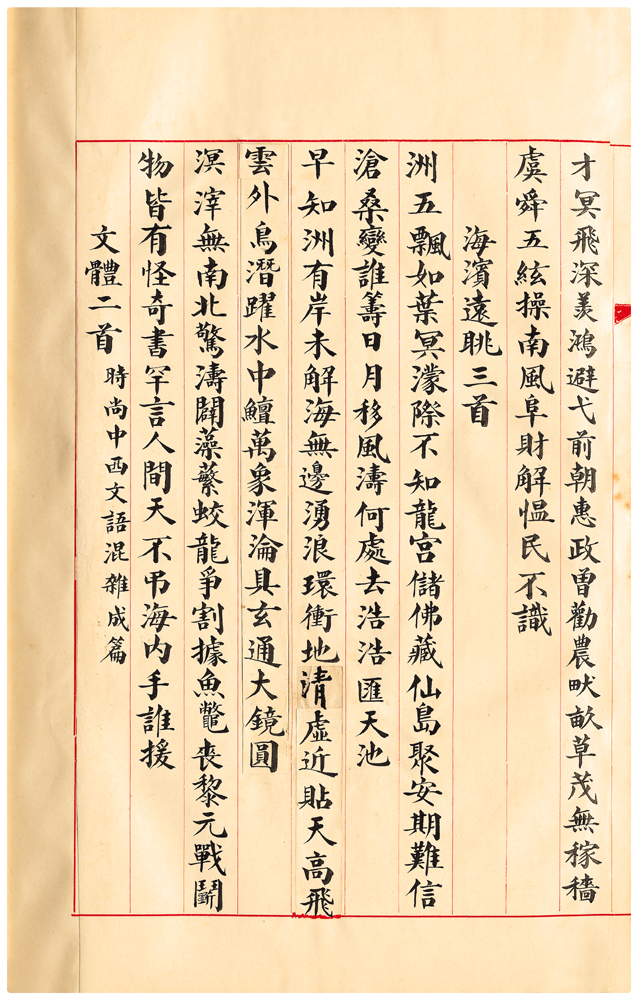 才冥飛深羡鴻避弋前朝惠政曾勸農畎畝草茂無稼穡
虞舜五絃操南風阜財解愠民不識
海濱遠眺三首
洲五飄如葉冥濛際不知龍宮儲佛藏仙島聚安期難信
滄桑變誰籌日月移風濤何處去浩浩匯天池
早知洲有岸未解海無邊湧浪環衝地清虛近貼天高飛
雲外鳥潛躍水中鱣萬象渾淪具玄通大鏡圓
溟滓無南北驚濤闢藻蘩蛟龍爭割據魚鼈喪黎元戰鬭
物皆有怪奇書罕言人間天不弔海内手誰援
文體二首 時尚中西文語混雜成篇